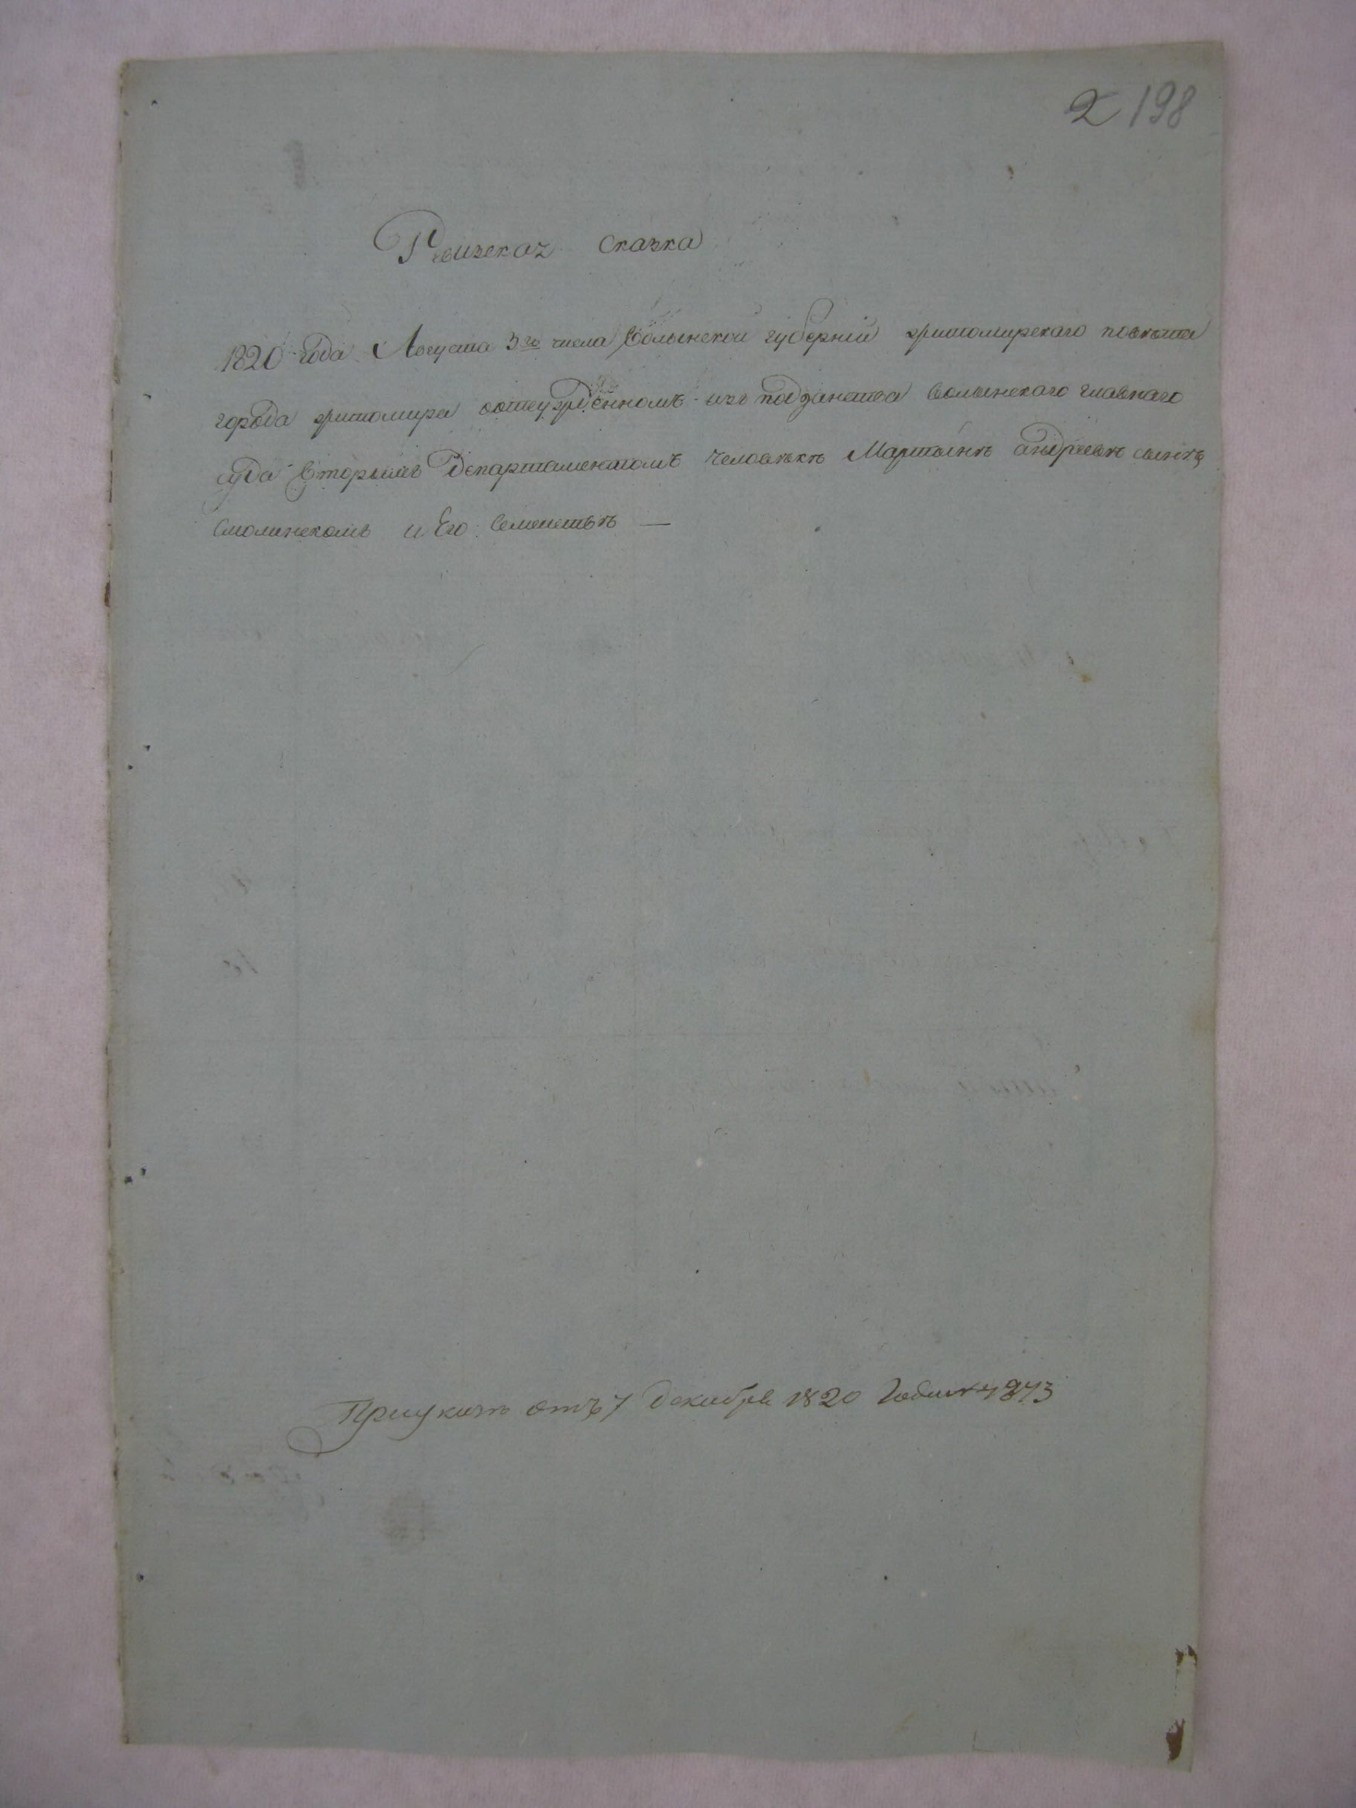 2 198
Ревизская Сказка
1820 года Августа 3го числа Волынской губернии житомирского повета
города житомира отсужденномъ изъ подданства волынского главного
суда Вторымъ Департаментомъ человеке Мартыне андрееве сыне
Смолинскомъ и Его Семействе —
При указе отъ 7 декабря 1820 Года № 4873